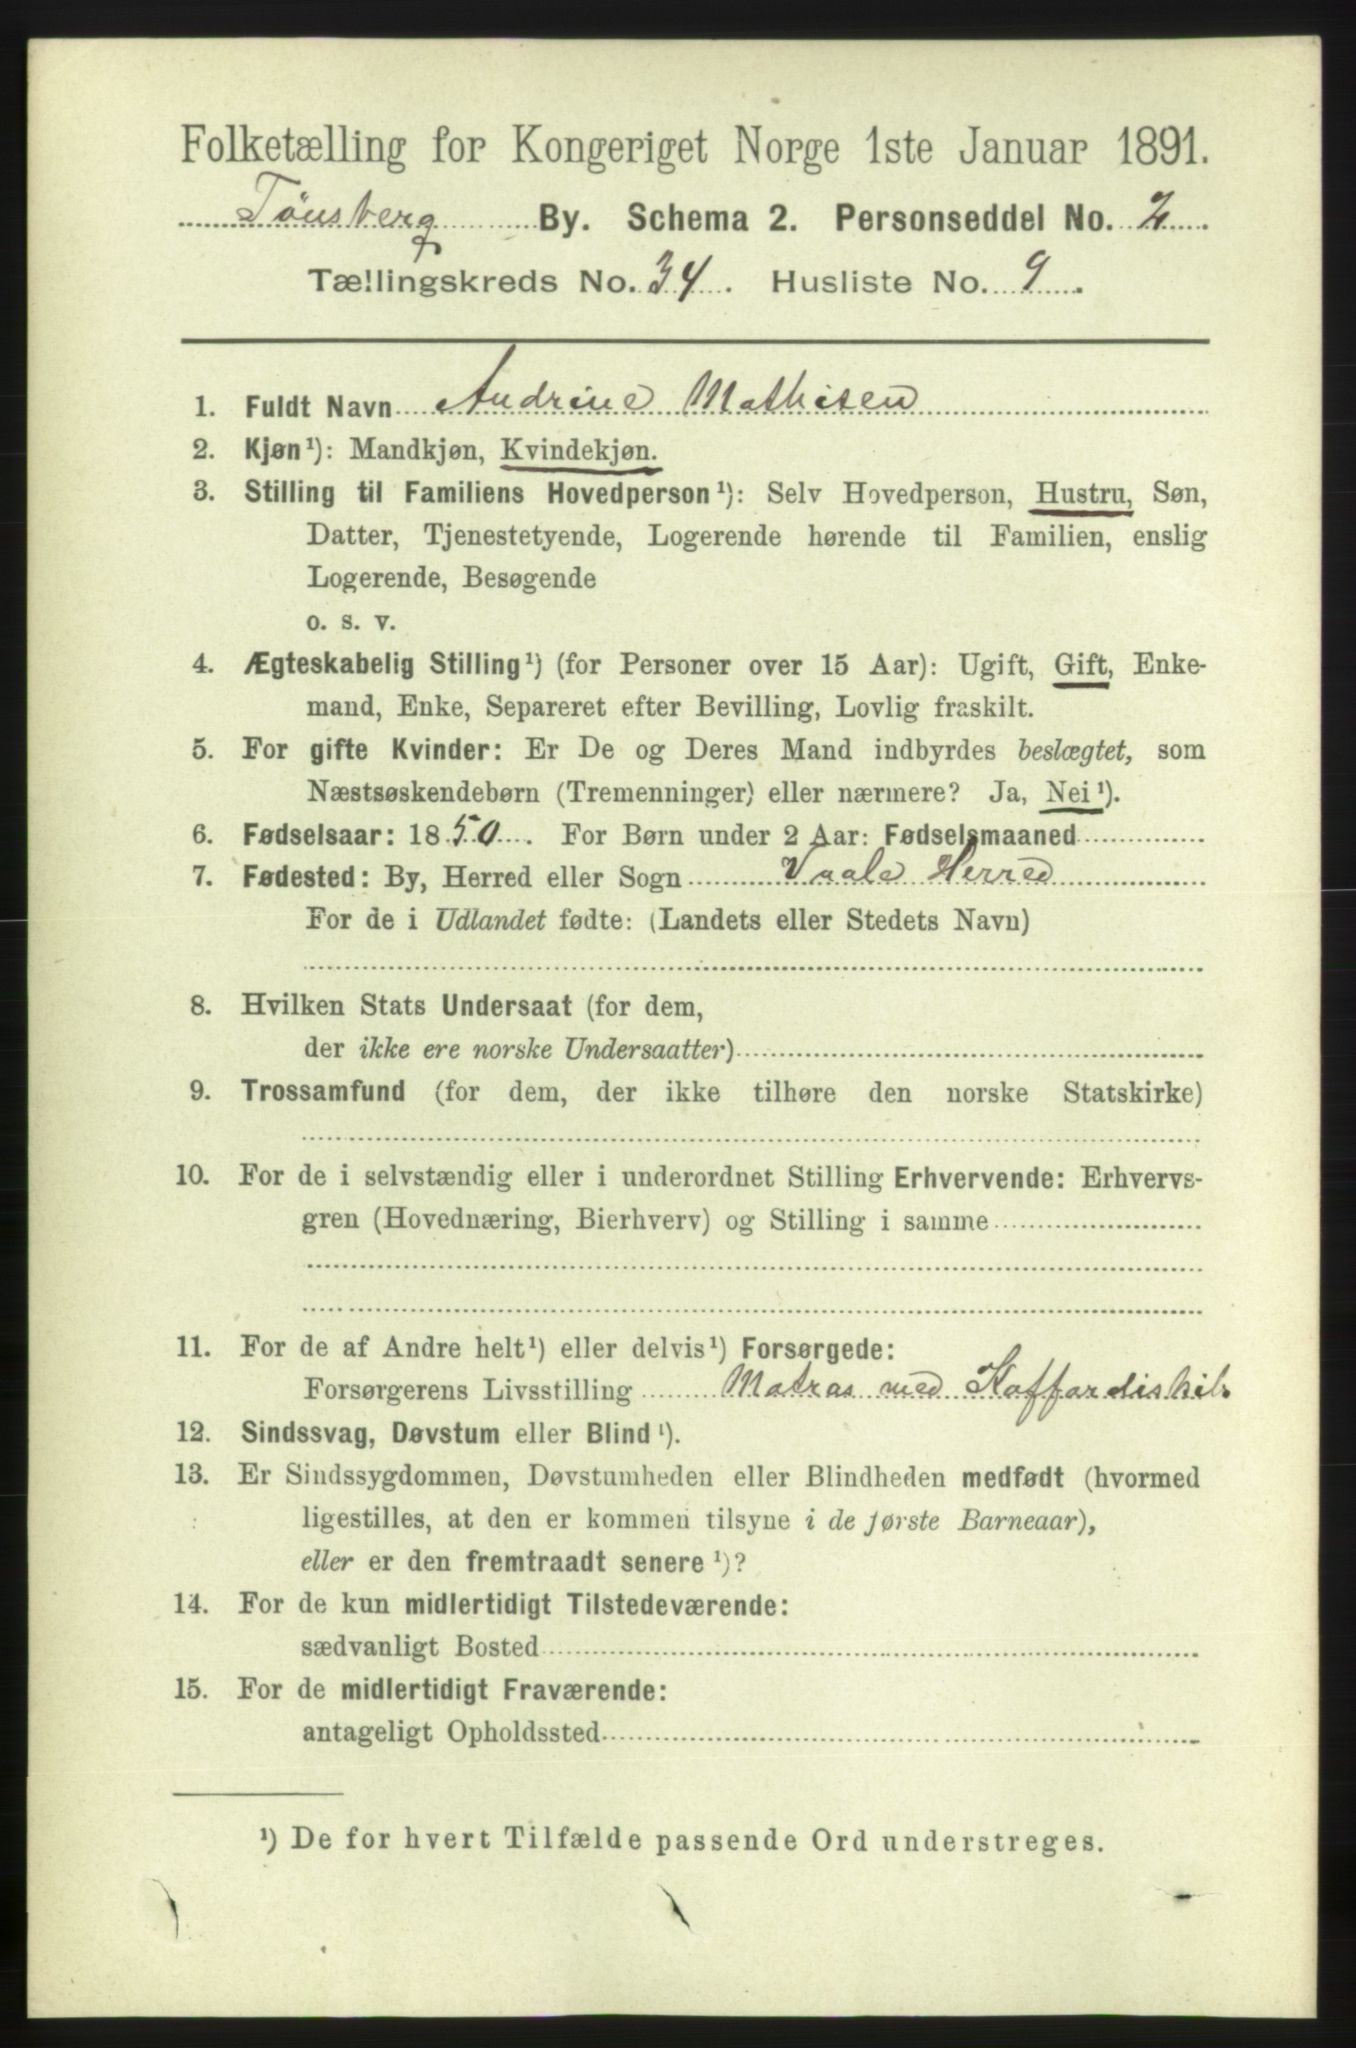 Folketælling for Kongeriget Norge 1ste Januar 1891.
Tönsberg By. Schema 2. Personseddel No. 2
Tællingskreds No. 34. Husliste No. 9.
1. Fuldt Navn Andrine Mathisen
2. Kjøn¹): Mandkjøn, Kvindekjøn.
3. Stilling til Familiens Hovedperson¹): Selv Hovedperson, Hustru, Søn,
Datter, Tjenestetyende, Logerende hørende til Familien, enslig
Logerende, Besøgende
o. s. v.
4. Ægteskabelig Stilling¹) (for Personer over 15 Aar): Ugift, Gift, Enke-
mand, Enke, Separeret efter Bevilling, Lovlig fraskilt.
5. For gifte Kvinder: Er De og Deres Mand indbyrdes beslægtet, som
Næstsøskendebørn (Tremenninger) eller nærmere? Ja, Nei¹).
6. Fødselsaar: 1850. For Børn under 2 Aar: Fødselsmaaned
7. Fødested: By, Herred eller Sogn Vaale Herred
For de i Udlandet fødte: (Landets eller Stedets Navn)
8. Hvilken Stats Undersaat (for dem,
der ikke ere norske Undersaatter)
9. Trossamfund (for dem, der ikke tilhøre den norske Statskirke)
10. For de i selvstændig eller i underordnet Stilling Erhvervende: Erhvervs-
gren (Hovednæring, Bierhverv) og Stilling i samme
11. For de af Andre helt¹) eller delvis¹) Forsørgede:
Forsørgerens Livsstilling Matros med Koffardiskib.
12. Sindssvag, Døvstum eller Blind¹).
13. Er Sindssygdommen, Døvstumheden eller Blindheden medfødt (hvormed
ligestilles, at den er kommen tilsyne i de første Barneaar),
eller er den fremtraadt senere¹)?
14. For de kun midlertidigt Tilstedeværende:
sædvanligt Bosted
15. For de midlertidigt Fraværende:
antageligt Opholdssted
¹) De for hvert Tilfælde passende Ord understreges.